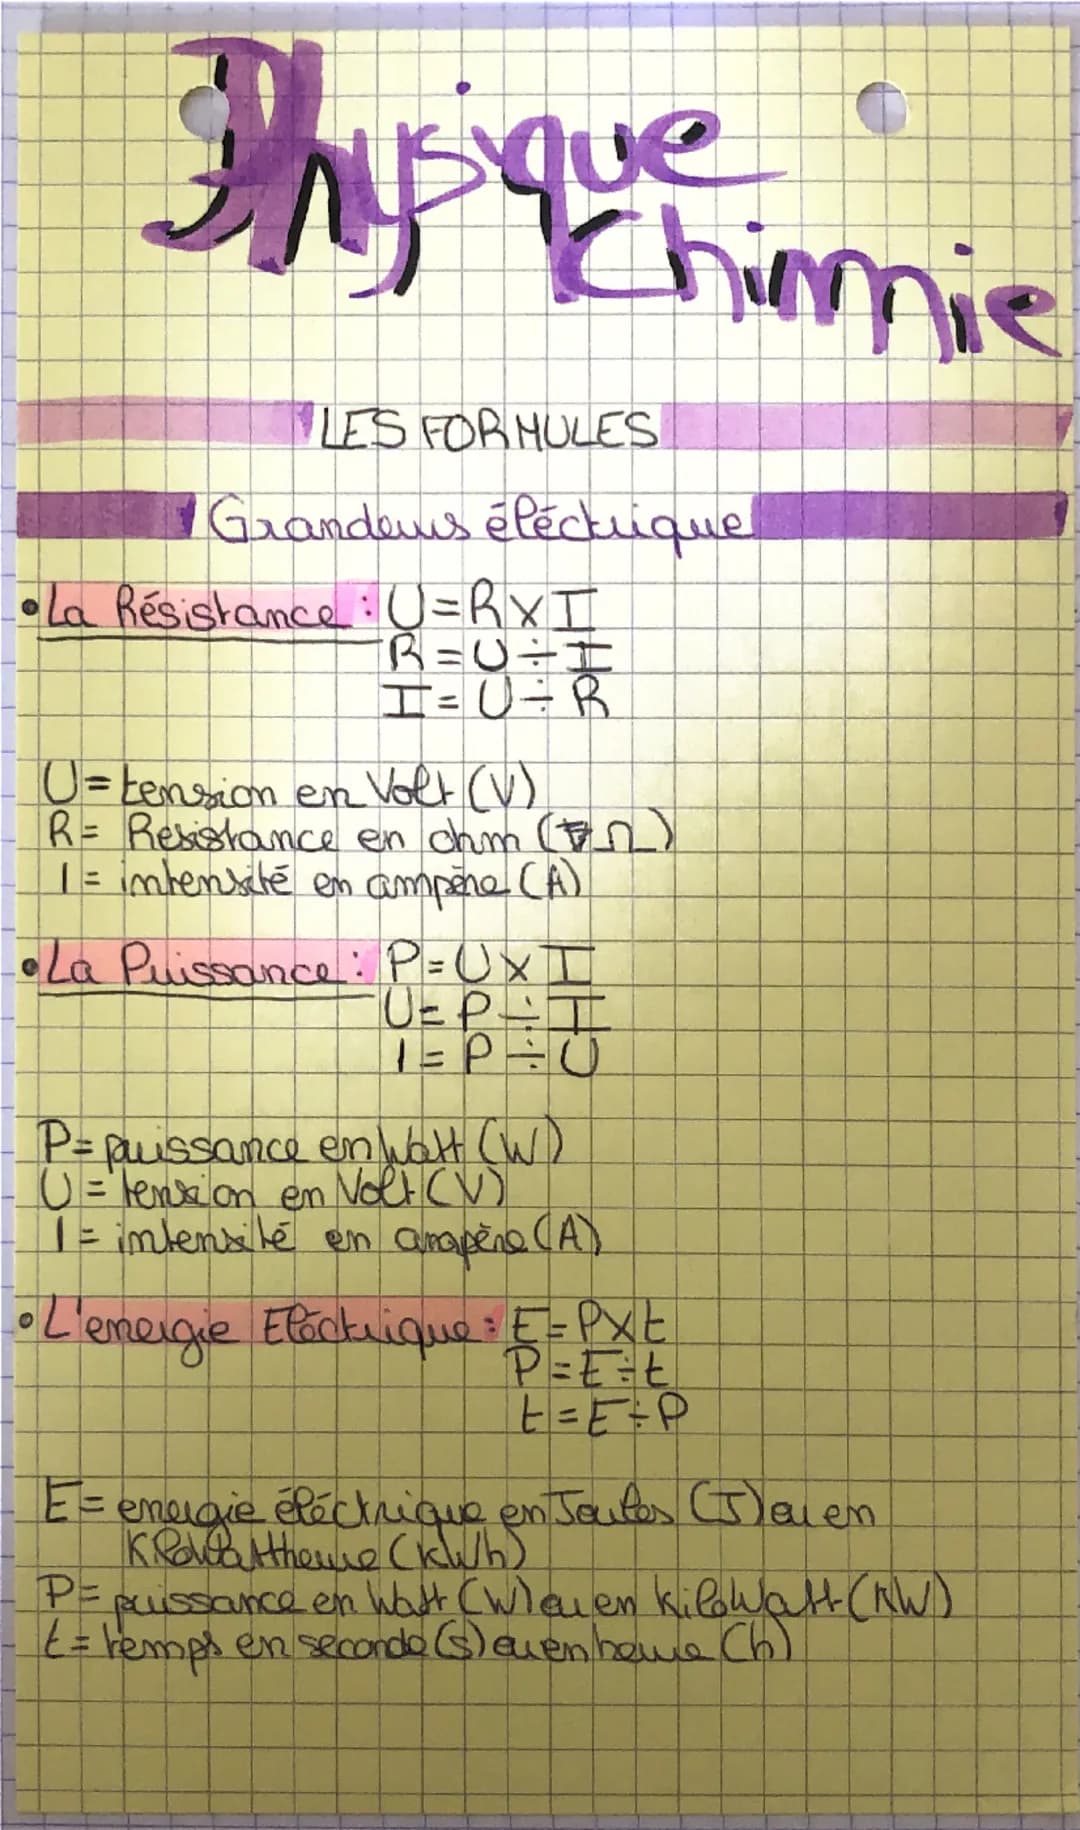 Physique
Chimie
LES FORMULES
Grandeurs éléctrique
• La Résistance : U=R×I
R=U÷I
I=U÷R
U= tension en Volt (V)
R= Resistance en ohm (Ω)
I= intensité en ampère (A)
• La Puissance : P=U×I
U=P÷I
I=P÷U
P= puissance en Watt (W)
U= tension en Volt (V)
I= intensité en ampère (A)
• L'energie Eléctrique : E=P×t
P=E÷t
t=E÷P
E= energie éléctrique en Joules (J) ou en
Kilowattheure (kWh)
P= puissance en Watt (W) ou en KiloWatt (KW)
t= temps en seconde (s) ou en heure (h)